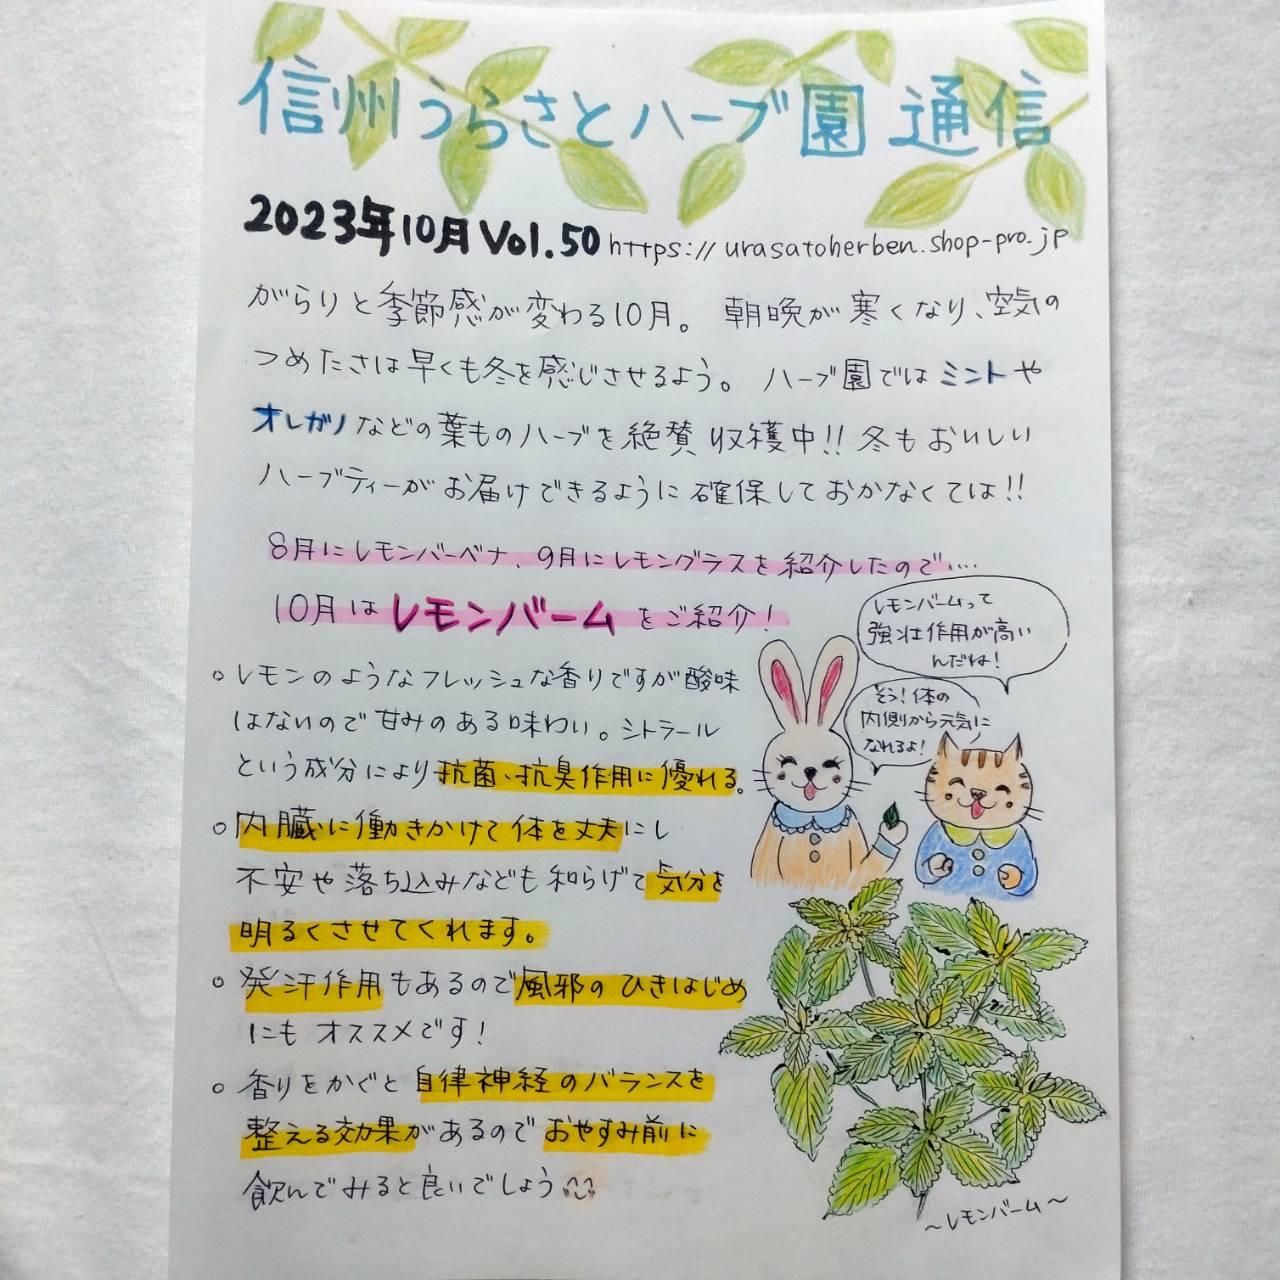 信州うらさとハーブ園 通信
2023年10月 Vol.50 https://urasatoherben.shop-pro.jp
がらりと季節感が変わる10月。 朝晩が寒くなり、空気の
つめたさは早くも冬を感じさせるよう。 ハーブ園ではミントや
オレガノなどの葉ものハーブを絶賛収穫中!! 冬もおいしい
ハーブティーがお届けできるように確保しておかなくては!!
8月にレモンバーベナ、9月にレモングラスを紹介したので....
10月はレモンバームをご紹介!
レモンバームって
強壮作用が高い
んだね!
そう!体の
内側から元気に
なれるよ!
○レモンのようなフレッシュな香りですが酸味
はないので甘みのある味わい。シトラール
という成分により抗菌、抗臭作用に優れる。
○内臓に働きかけて体を丈夫にし
不安や落ち込みなども和らげて気分を
明るくさせてくれます。
○発汗作用もあるので風邪のひきはじめ
にもオススメです!
○香りをかぐと自律神経のバランスを
整える効果があるのでおやすみ前に
飲んでみると良いでしょう
～レモンバーム～